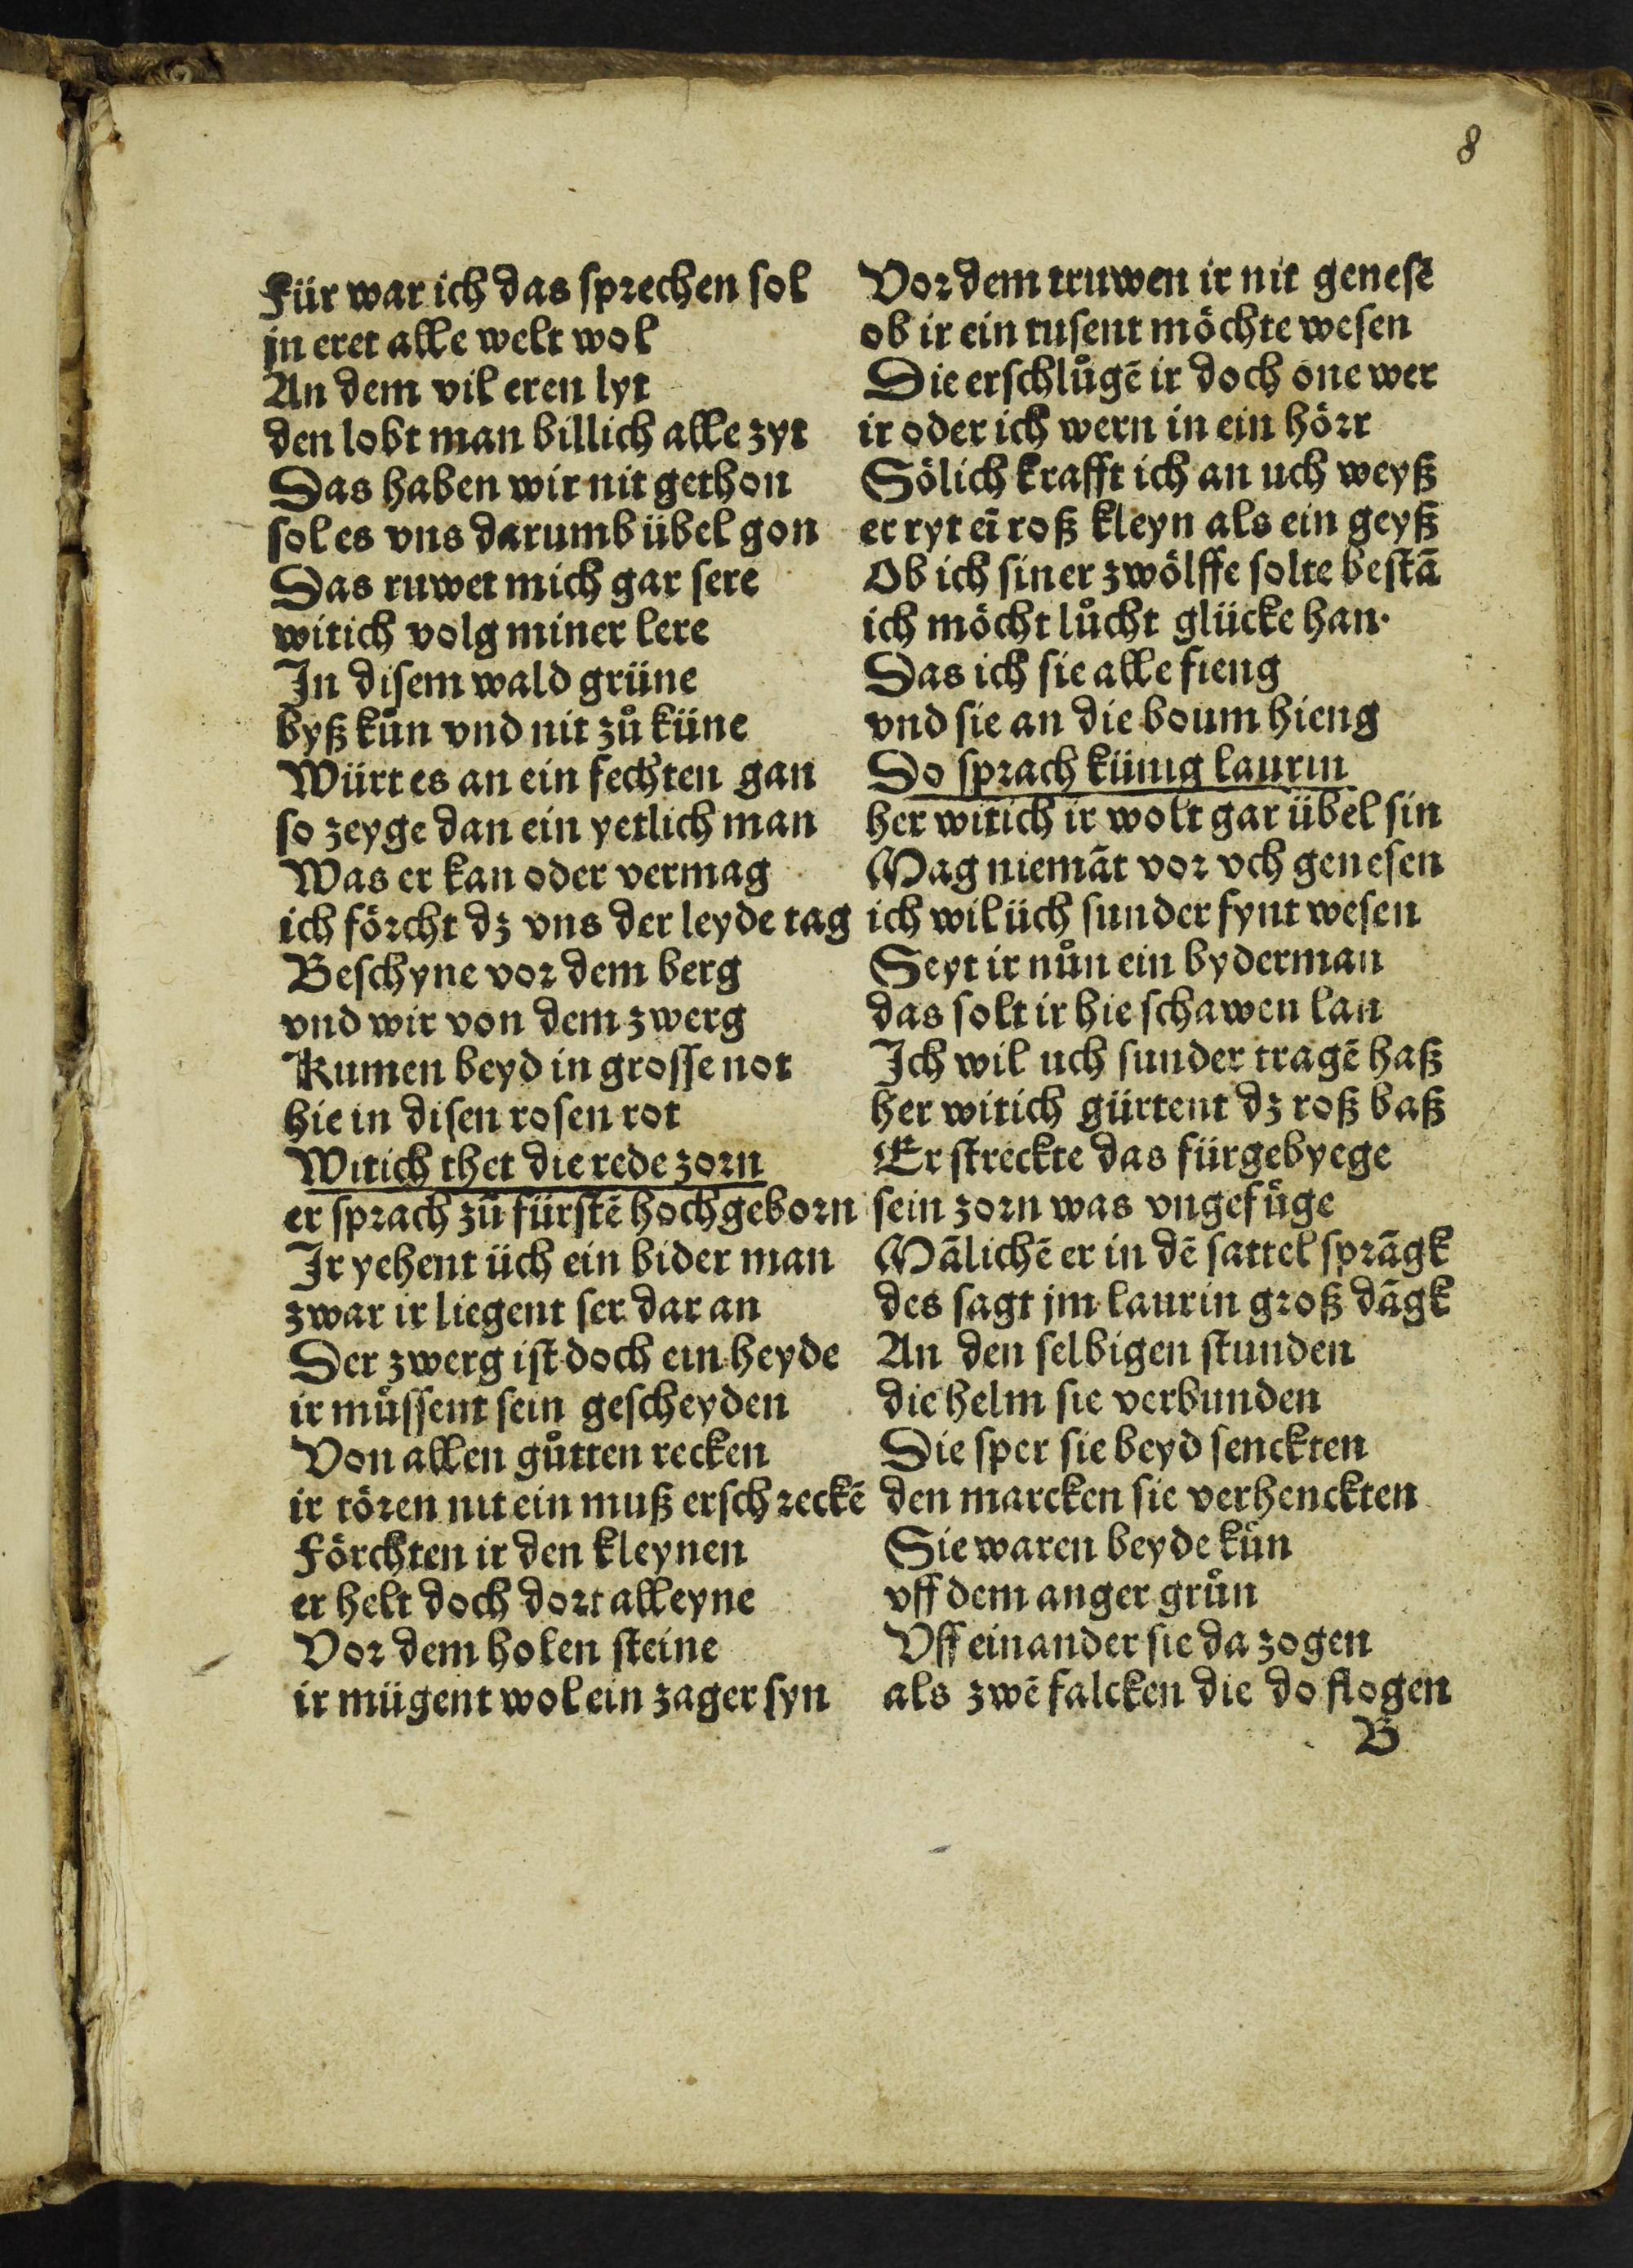 8
Für war ich das sprechen sol
jn eret alle welt wol
An dem vil eren lyt
den lobt man billich alle zyt
Das haben wir nit gethon
sol es vns darumb übel gon
Das ruwet mich gar sere
witich volg miner lere
In disem wald grüne
byß kün vnd nit zů küne
Würt es an ein fechten gan
so zeyge dan ein yetlich man
Was er kan oder vermag
ich förcht dz vns der leyde tag
Beschyne vor dem berg
vnd wir von dem zwerg
Kumen beyd in grosse not
hie in disen rosen rot
Witich thet die rede zorn
er sprach zů fürstē hochgeborn
Ir yehent üch ein bider man
zwar ir liegent ser dar an
Der zwerg ist doch ein heyde
ir můssent sein gescheyden
Von allen gůtten recken
ir tören nit ein muß erschreckē
Förchten ir den kleynen
er helt doch dort alleyne
Vor dem holen steine
ir mügent wol ein zager syn
Vor dem truwen ir nit genesē
ob ir ein tusent möchte wesen
Die erschlůgē ir doch one wer
ir oder ich wern in ein hörr
Sölich krafft ich an uch weyß
er ryt eī roß kleyn als ein geyß
Ob ich siner zwölffe solte bestā
ich möcht lůcht glücke han·
Das ich sie alle fieng
vnd sie an die boum hieng
Do sprach künig laurin
her witich ir wolt gar übel sin
Mag niemāt vor vch genesen
ich wil üch sunder fynt wesen
Seyt ir nůn ein byderman
das solt ir hie schawen lan
Ich wil uch sunder tragē haß
her witich gürtent dz roß baß
Er streckte das fürgebyege
sein zorn was vngefüge
Mālichē er in dē sattel sprāgk
des sagt jm laurin groß dāgk
An den selbigen stunden
die helm sie verbunden
Die sper sie beyd senckten
den marcken sie verhenckten
Sie waren beyde kün
vff dem anger grůn
Vff einander sie da zogen
als zwē falcken die do flogen
B